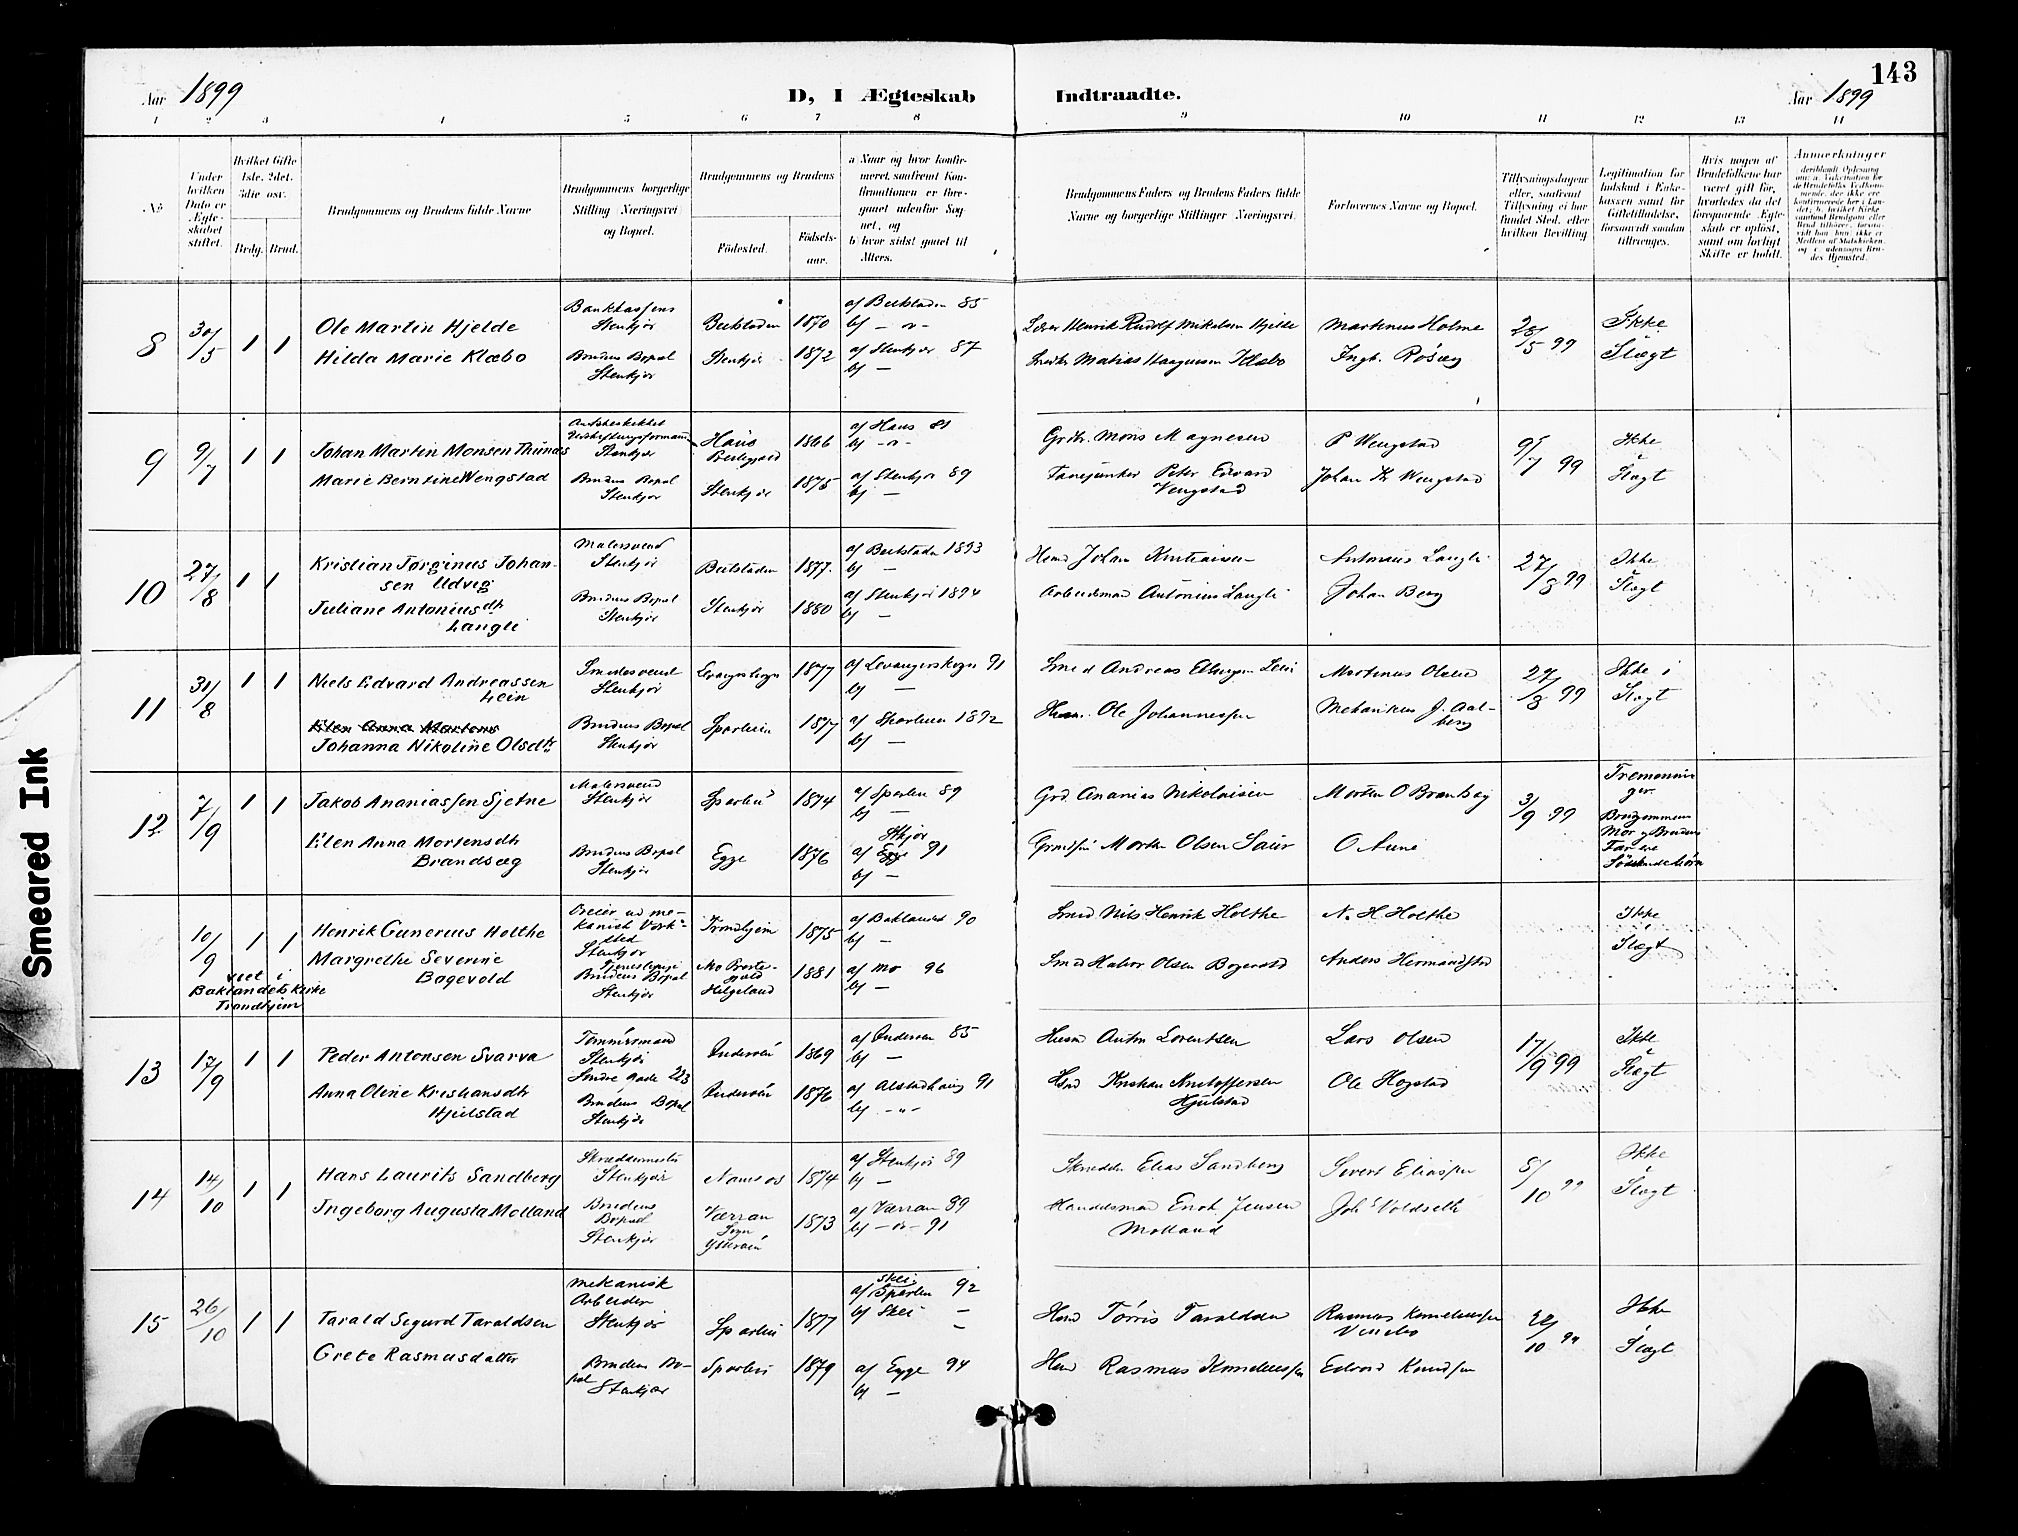 143
Aar 1899
D, I Ægteskab
Indtraadte.
Aar 1899
1 2 3 4 5 6 7 8 9 10 11 12 13 14
No
Under hvilken Dato er Ægteskabet stiftet.
Hvilket Gifte 1ste. 2det. 3die osv.
Brdg. Brud.
Brudgommens og Brudens fulde Navne
Brudgommens borgerlige Stilling Næringsvei og Bopæl.
Brudgommens og Brudens
Födested.
Födselsaar.
a Naar og hvor konfirmeret, saafremt Konfirmationen er foregaaet udenfor Sognet, og
b hvor sidst gaaet til Alters.
Brudgommens Faders og Brudens Faders fulde Navne og borgerlige Stillinger Næringsvei.
Forlovernes Navne og Bopæl.
Tillysningsdagene eller, saafremt Tillysning ei har fundet Sted, efter hvilken Bevilling
Legitimation for Indskud i Enkekassen samt for Giftetilladelse, forsaavidt saadan tiltrænges.
Hvis nogen af Brudefolkene har været gift før, hvorledes da det foregaaende Ægteskab er opløst, samt om lovligt Skifte er holdt.
Anmærkninger
8
30/5
1 1
Ole Martin Hjelde
Hilda Marie Klæbo
Stenkjør
Brudens Bopæl
Stenkjør
Beitstaden 1870
Stenkjør 1872
a) Beitstaden 85
b) - " -
a) Stenkjær 87
b) -
Martinus Holme
28/5 99
Ikke
Slægt
9
9/7
1 1
Johan Martin Monsen Thunæs
Marie Berntine Wengstad
Stenkjær
Brudens Bopæl
Stenkjør
Haus
1866
Stenkjør 1875
a) Haus 81
b) - " -
a) Stenkjør 89
b) -
Mons Magnesen
Peter Edvard
Vengstad
P Wengstad
Johan Kr Wengstad
9/7 99
Ikke
i
Slægt
10
27/8
1 1
Kristian Torginus Johan-
sen Udvig
Juliane Antoniusdtr
Langli
Malersvend
Stenkjør
Brudens Bopæl
Stenkjør
Beitstaden 1877.
Stenkjør 1880
a) Beitstaden 1893
b) -
a) Stenkjør 1894
b) -
Johan Kristiansen
Arbeidsmand Antonius Langli
Antonius Langli
Johan Berg
27/8 99
Ikke
i
Slægt
11
31/8
1 1
Niels Edvard Andreassen
Lein
Elen Anna Mortens
Johanna Nikoline Olsdtr
Smedesvend
Stenkjør
Brudens Bopæl
Stenkjør
1877
Sparbuen 1877
a) Levangerskogn 91
b) -
a) Sparbuen 1892
b) -
Smed Andreas
Ole Johannessen
Martinus Olsen
Mekanikus J. Aal-
berg
27/8 99
Ikke i
Slægt
12
7/9
1 1
Jakob Ananiassen Sjetne
Elen Anna Mortensdtr
Brandsæg
Malersvend
Stenkjør
Brudens Bopæl
Stenkjør
Sparbu 1874
Egge 1876
a) Sparbu 89
b) -
Stkjør
a) Egge 91
b) -
Grd. Ananias Nikolaisen
Morten Olsen Saur
Morten O Brandsæg
O Aune
3/9 99
Tremennin
ger.
Brudgommens
Mor og Brudens
Far ere
Sødskendebørn
10/9
1 1
Henrik Gunerius Holthe
Margrethe Severine
Bagevold
viet i
Baklandets Kirke
Trondhjem
Eeier ad me-
kanisk Værk-
sted
Stenkjør
Brudens Bopæl
Stenkjør
Trondhjem 1875
Mo Præste-
gjeld
Helgeland
1881
a) Baklandet 90
b) -
a) Mo 96
b) -
Smed Nils Henrik Holthe
Smed Halvor Olsen
N. H. Holthe
Anders Hermandstad
Ikke
i
Slægt
13
17/9
1 1
Peder Antonsen Svarva
Anna Oline Kristiansdtr
Hjelstad
Tømmermand
Stenkjør
Søndre Gade 223
Brudens Bopæl
Stenkjør
Inderøen 1869
Inderøen 1876
a) Inderøen 85
b) -
a) Alstadhaug 91
b) - " -
Husm Anton Lorentsen
Kristian Kristoffersen
Hjelstad
Lars Olsen
Ole Hogstad
17/9 99
Ikke
i
Slægt
14
14/10
1 1
Hans Laurits Sandberg
Ingeborg Augusta Molland
Skræddermester
Stenkjør
Brudens
Bopæl
Stenkjør
Namsos 1874
Værran
Sogn
Ytterøen
1873
a) Stenkjør 89
b) -
a) Værran 89
b) - " - 91
Skrædder Elias Sandberg
Handelsmand Enok Jensen
Molland
Sivert Eliassen
Joh Voldseth
8/10 99
Ikke
i
Slægt
15
26/10
1 1
Tarald Sigurd Taraldsen
Grete Rasmusdatter
Mekanisk
Arbeider
Stenkjør
Brudens Bo-
pæl
Stenkjær
Sparbu 1877
Sparbu 1879
Skei
a) Sparbu 92
b) Skei -
a) Egge 94
b) -
Tørris Taraldsen
Rasmus Korneliussen
Rasmus Korneliussen
Edvard Knudsen
22/10 99
Ikke
i
Slægt
Smeared Ink